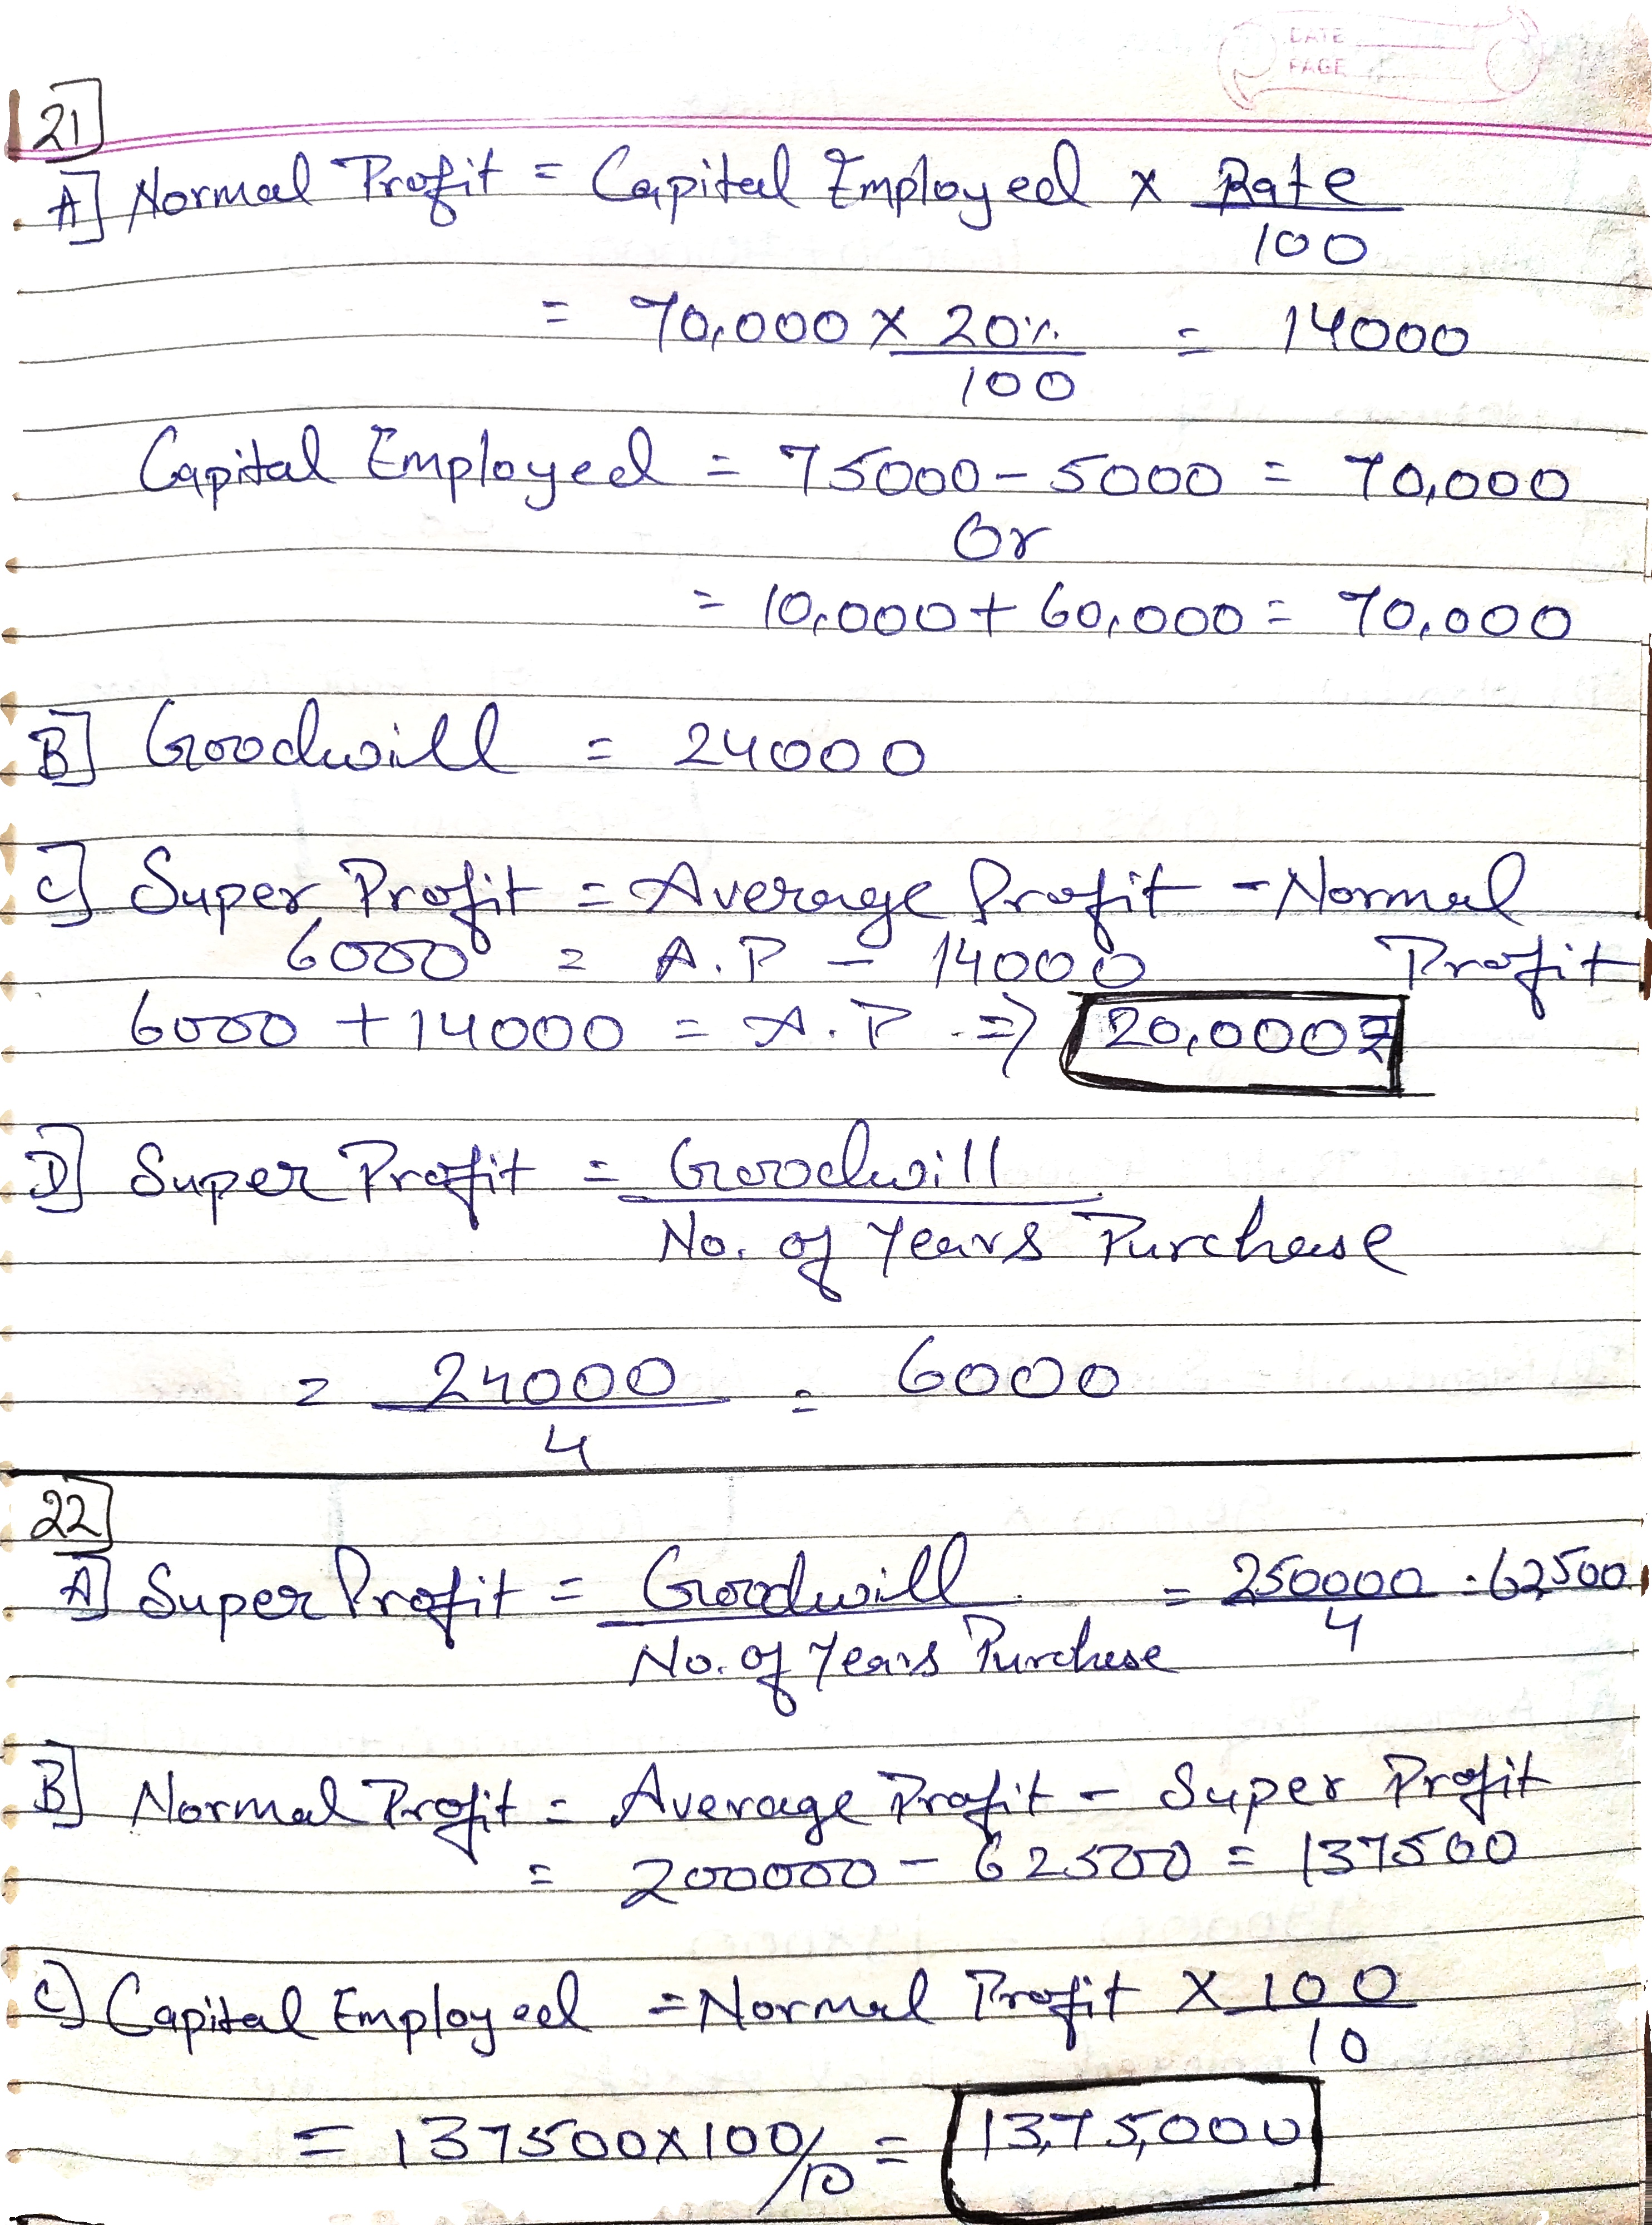 DATE
PAGE
21
A] Normal Profit = Capital Employed × Rate/100
= 70,000 × 20%/100 = 14000
Capital Employed = 75000 - 5000 = 70,000
Or
= 10,000 + 60,000 = 70,000
B] Goodwill = 24000
C] Super Profit = Average Profit - Normal Profit
6000 = A.P - 14000
6000 + 14000 = A.P. => 20,000₹
D] Super Profit = Goodwill/No. of Years Purchase
= 24000/4 = 6000
22
A] Super Profit = Goodwill/No. of Years Purchase = 250000/4 = 62500
B] Normal Profit = Average Profit - Super Profit
= 200000 - 62500 = 137500
C] Capital Employed = Normal Profit × 100/10
= 137500×100/10 = 13,75,000